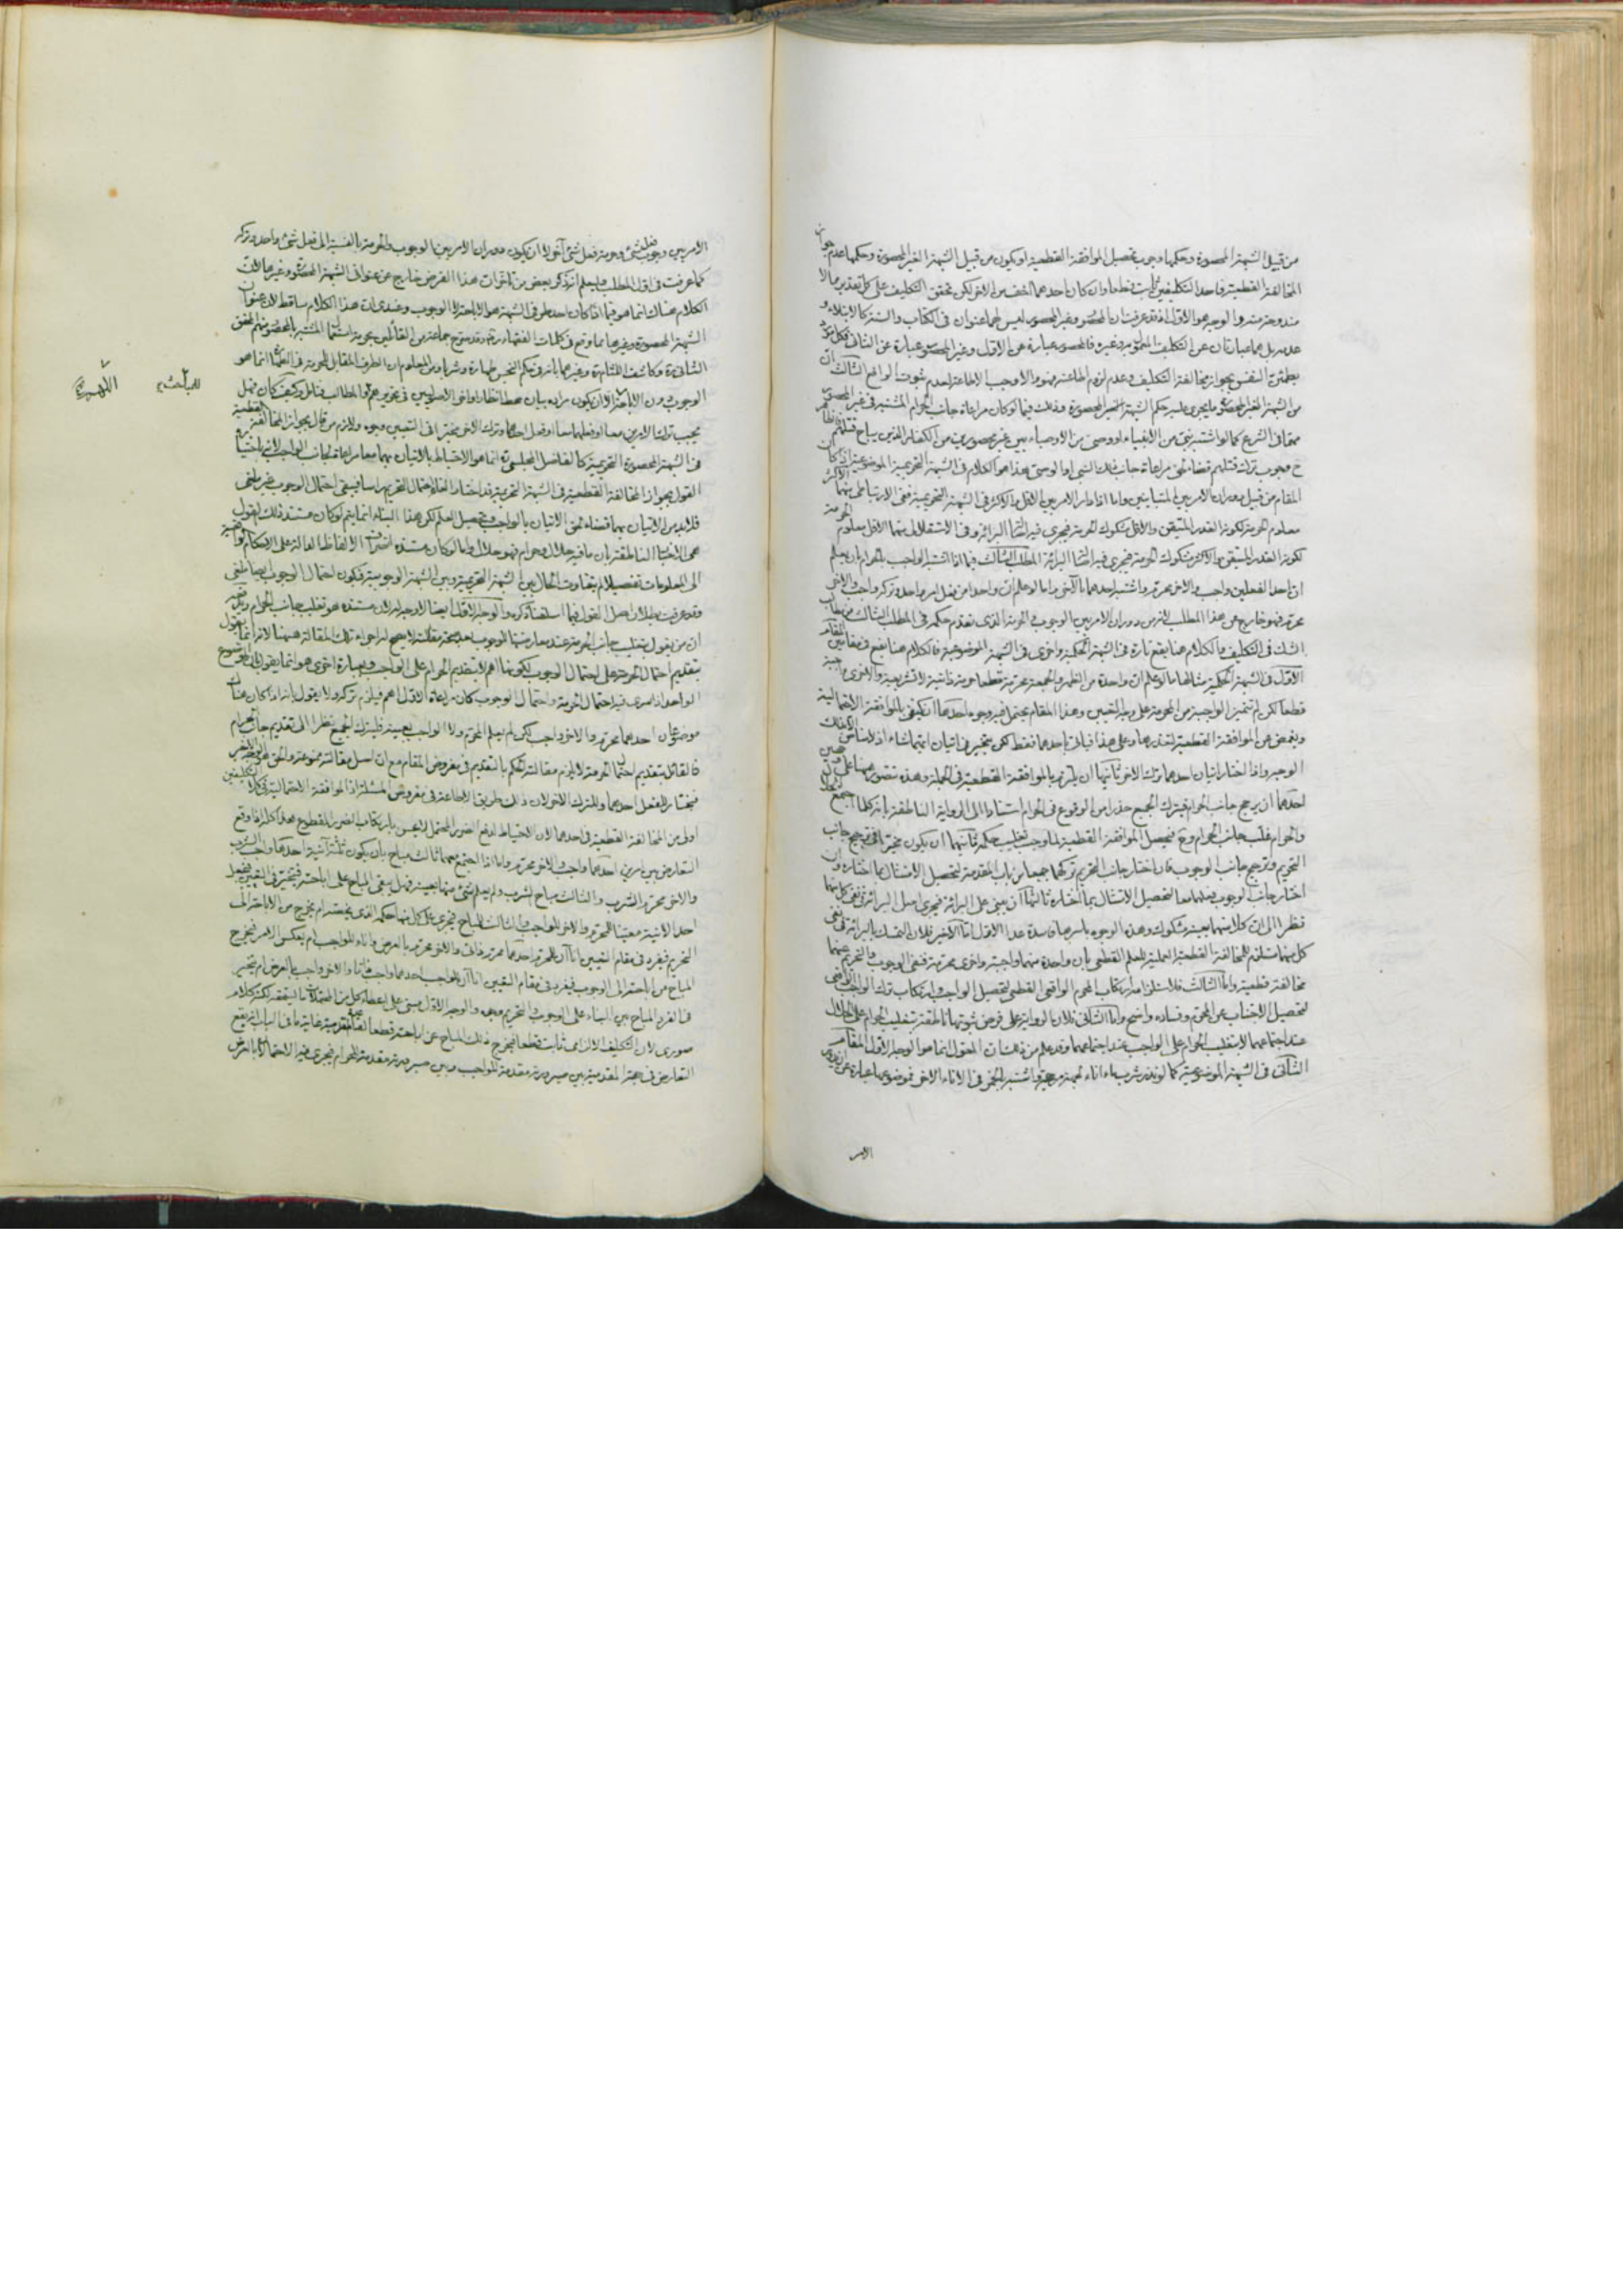 من قبيل الشبهة المحصورة وحكمها وجوب تحصيل الموافقة القطعية او يكون من قبيل الشبهة الغير المحصورة وحكمها عدم جواز
المخالفة القطعية فاحد التكليفين ثابت قطعا وان كان احدهما اخف من الاخر لكن تحقق التكليف على كل تقدير مما لا
مندوحة منه والوجه هو الاول اذ قد عرفت ان المحصور وغير المحصور ليس لهما عنوان فى الكتاب والسنة كالابتلاء و
عدمه بل هما عبارتان عن التكليف وغيره فالمحصور عبارة عن الاول وغير المحصور عبارة عن الثانى فكل مورد
النفس بجواز مخالفة التكليف وعدم لزوم اطاعته فهو والا وجب الاطاعة لعدم ثبوت الواقع الثالث ان
من الشبهة الغير المحصورة ما يجرى عليه حكم الشبهة المحصورة وذلك فيما لو كان مراعاة جانب الحرام المشتبه فى غير المحصور
فى الشرع كما لو اشتبه نبى من الانبياء او وصى من الاوصياء بين غير محصورين من الكفار الذين يباح قتلهم
ح فيجب ترك قتلهم قضاء لحق مراعاة جانب ذلك النبى او الوصى هذا هو الكلام فى الشبهة التحريمية الموضوعية اذا كان
المقام من قبيل دوران الامر بين المتباينين واما اذا دار الامر بين الاقل والاكثر فى الشبهة التحريمية ففى الارتباطى منهما الاكثر
معلوم الحرمة لكونه القدر المتيقن والاقل مشكوك الحرمة فيجرى فيه اصالة البرائة وفى الاستقلالى منهما الاقل معلوم الحرمة
لكونه القدر المتيقن والاكثر مشكوك الحرمة فيجرى فيه اصالة البرائة المطلب الثالث فيما اذا اشتبه الواجب بالحرام بان يعلم
ان احد الفعلين واجب والاخر محرم واشتبه احدهما بالآخر واما لو علم ان واحدا من فعل امر واحد وتركه واجب والاخر
محرم فهو خارج عن هذا المطلب لانه من دوران الامر بين الوجوب والحرمة الذى تقدم حكمه فى المطلب الثالث من مطالب
الشك فى التكليف والكلام هنا يقع تارة فى الشبهة الحكمية واخرى فى الشبهة الموضوعية فالكلام هنا يقع فى مقامين المقام
الاول فى الشبهة الحكمية مثالها ما لو علم ان واحدة من الظهر والجمعة محرمة قطعا حرمة ذاتية لا تشريعية والاخرى واجبة
قطعا لكن لم تتميز الواجبة من المحرمة على وجه التعيين وهذا المقام يحتمل فيه وجوه احدها ان يكتفى بالموافقة الاحتمالية
ويغمض عن الموافقة القطعية لتعذرها وعلى هذا فياتى باحدهما فقط لكن يتخير فى اتيان ايتهما شاء
الوجه واذا اختار اتيان احدهما ترك الاخر ثانيها ان يلتزم بالموافقة القطعية فى الجملة وهذه تتصور هنا على وجهين
احدهما ان يرجح جانب الحرام فيترك الجميع حذرا من الوقوع فى الحرام استنادا الى الرواية الناطقة بانه كلما اجتمع الحلال
والحرام غلب جانب الحرام وح فيحصل الموافقة القطعية لما وجب تغليب حكمه ثانيهما ان يكون مخيرا فى ترجيح جانب
التحريم وترجيح جانب الوجوب فان اختار جانب التحريم تركهما جميعا من باب المقدمة لتحصيل الامتثال بما اختاره وان
اختار جانب الوجوب فعلهما معا لتحصيل الامتثال بما اختاره ثالثها ان يبنى على البرائة فيجرى اصل البرائة فى نفى كل منهما
نظرا الى ان كلا منهما بعينه مشكوك وهذه الوجوه باسرها فاسدة عدا الاول اما الاخير فلان التمسك بالبرائة فى نفى
كل منهما مستلزم للمخالفة القطعية العملية للعلم القطعى بان واحدة منهما واجبة واخرى محرمة فنفى الوجوب والتحريم عنهما
مخالفة قطعية واما الثالث فلاستلزامه ارتكاب الحرام الواقعى القطعى لتحصيل الواجب وارتكاب ترك الواجب الواقعى
لتحصيل الاجتناب عن المحرم وفساده واضح واما الثانى فلان الرواية على فرض ثبوتها ناطقة بتغليب الحرام على الحلال
عند اجتماعهما لا بتغليب الحرام على الواجب عند اجتماعهما وقد علم من ذلك ان المعول انما هو الوجه الاول المقام
الثانى فى الشبهة الموضوعية كما لو نذر شرب ماء اناء واشتبه الخمر فى الاناء الاخر فموضوعها عبارة عن دوران
الامر
الامر بين وجوب فعل شئ وحرمة فعل شئ آخر لا ان يكون دوران الامر بين الوجوب والحرمة بالنسبة الى فعل شئ واحد وتركه
كما عرفت فى اول المطلب فليعلم انه ذكر بعض من تاخر ان هذا الفرض خارج عن عنوانى الشبهة المحصورة وغيرها لان
الكلام هناك انما هو فيما اذا كان احد طرفى الشبهة هو الاباحة لا الوجوب وعندى ان هذا الكلام ساقط لان عنوان
الشبهة المحصورة وغيرها مما وقع فى كلمات الفقهاء وقد صرح جماعة من القائلين بحرمة استعمال المشتبه بالمحصور منهم المحقق
الثانى ره وكاشف اللثام ره وغيرهما بانه فى حكم النجس طهارة وشربا ومن المعلوم ان الطرف المقابل للحرمة فى الطهارة انما هو
الوجوب دون الاباحة الا ان يكون مراده بيان محط انظار اواخر الاصوليين فى تحريرهم للمطالب فتامل وكيف كان فهل
يجب ترك الامرين معا او فعلهما معا او فعل احدهما وترك الاخر مخيرا فى التعيين وجوه ولازم من قال بجواز المخالفة القطعية
فى الشبهة المحصورة التحريمية كالفاضل المجلسى ره انما هو الاحتياط بالاتيان بهما معا مراعاة لجانب الواجب لانه باختياره
القول بجواز المخالفة القطعية فى الشبهة التحريمية قد اختار الغاء احتمال التحريم راسا فيبقى احتمال الوجوب غير ملغى
فلا بد من الاتيان بهما قضاء لحق الاتيان بالواجب وتحصيل العلم لكن هذا البناء انما يتم لو كان مستند ذلك القول
هى الاخبار الناطقة بان ما فيه حلال وحرام فهو حلال واما لو كان مستنده انصراف الالفاظ الدالة على الاحكام التحريمية
الى المعلومات تفصيلا لم يتفاوت الحال بين الشبهة التحريمية وبين الشبهة الوجوبية فيكون احتمال الوجوب ايضا ملغى
وقد عرفت بطلان اصل القول فيما اسلفنا ذكره والوجه الاول ايضا لا وجه له لان مستنده هو تغليب جانب الحرام
ان من يقول بتغليب جانب الحرمة عند معارضتها الوجوب بعد صحة مقالته لا يصح له اجراء تلك المقالة هيهنا لانه انما يقول
بتقديم احتمال الحرمة على احتمال الوجوب لا بتقديم الحرام على الواجب وبعبارة اخرى هو انما يقول بان الموضوع
الواحد اذا سرى فيه احتمال الحرمة واحتمال الوجوب كان مراعاة الاول اهم فيلزم تركه ولا يقول بانه اذا كان هناك
موضوعان احدهما محرم والاخر واجب لكن لم يعلم المحرم ولا الواجب بعينه فليترك الجميع نظرا الى تقديم جانب الحرام
فالقائل بتقديم احتمال الحرمة لا يلزم مقالته الحكم بالتقديم فى مفروض المقام مع ان اصل مقالته ممنوعة والحق هو التخيير
فيختار للفعل احدهما وللترك الاخر لان ذلك طريق الاطاعة فى مفروض المسئلة اذ الموافقة الاحتمالية فى كلا التكليفين
اولى من المخالفة القطعية فى احدهما لان الاحتياط لدفع الضرر المحتمل لا يحسن بارتكاب الضرر المقطوع هذا كله اذا وقع
التعارض بين امرين احدهما واجب والاخر محرم واما اذا اجتمع معهما ثالث مباح بان يكون ثلثة آنية احدها واجب الشرب
والاخر محرم الشرب والثالث مباح الشرب ولم يعلم شئ منها بعينه فهل يبقى المباح على اباحته فيتخير فى التعيين فيجعل
احد الآنية معينا للمحرم والاخر للواجب والثالث للمباح فيجرى على كل منها حكمه الذى يختصه ام يخرج من الاباحة الى
التحريم فيفرد فى مقام التعيين اناءان للمحرم احدهما محرم ذاتا والاخر محرم بالعرض واناء للواجب ام يعكس الامر فيخرج
المباح من اباحته الى الوجوب فيفرد فى مقام التعيين اناءان للواجب احدهما واجب ذاتا والاخر واجب بالعرض ام يتخير
فى الفرد المباح بين البناء على الوجوب والتحريم وجوه والوجه الاول مبنى على اعطاء كل من المحتملات ما يستحقه لكنه كلام
صورى لان التكليف الالزامى ثابت قطعا فيخرج ذلك المباح عن اباحته قطعا لمقدمية غاية ما فى الباب انه يقع
التعارض فى جهة المقدمية بين صيرورته مقدمة للواجب وبين صيرورته مقدمة للحرام فيجرى فيه الاحتمالات بالعرض